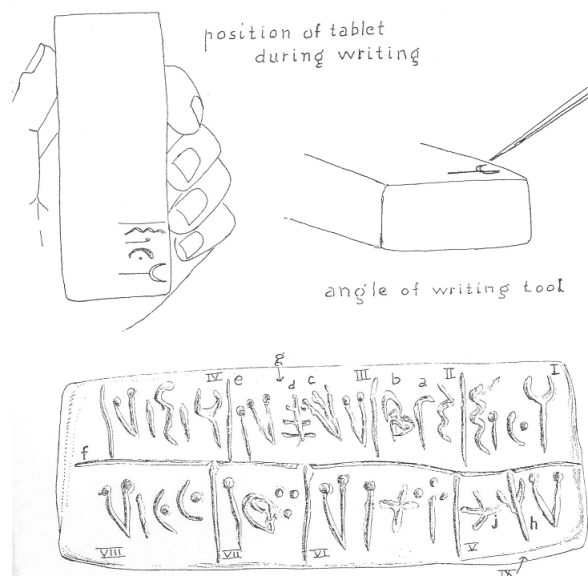 position of tablet
during writing
angle of writing tool
g
IV e d c III b a II I
f
j h
VIII VII VI V
IX